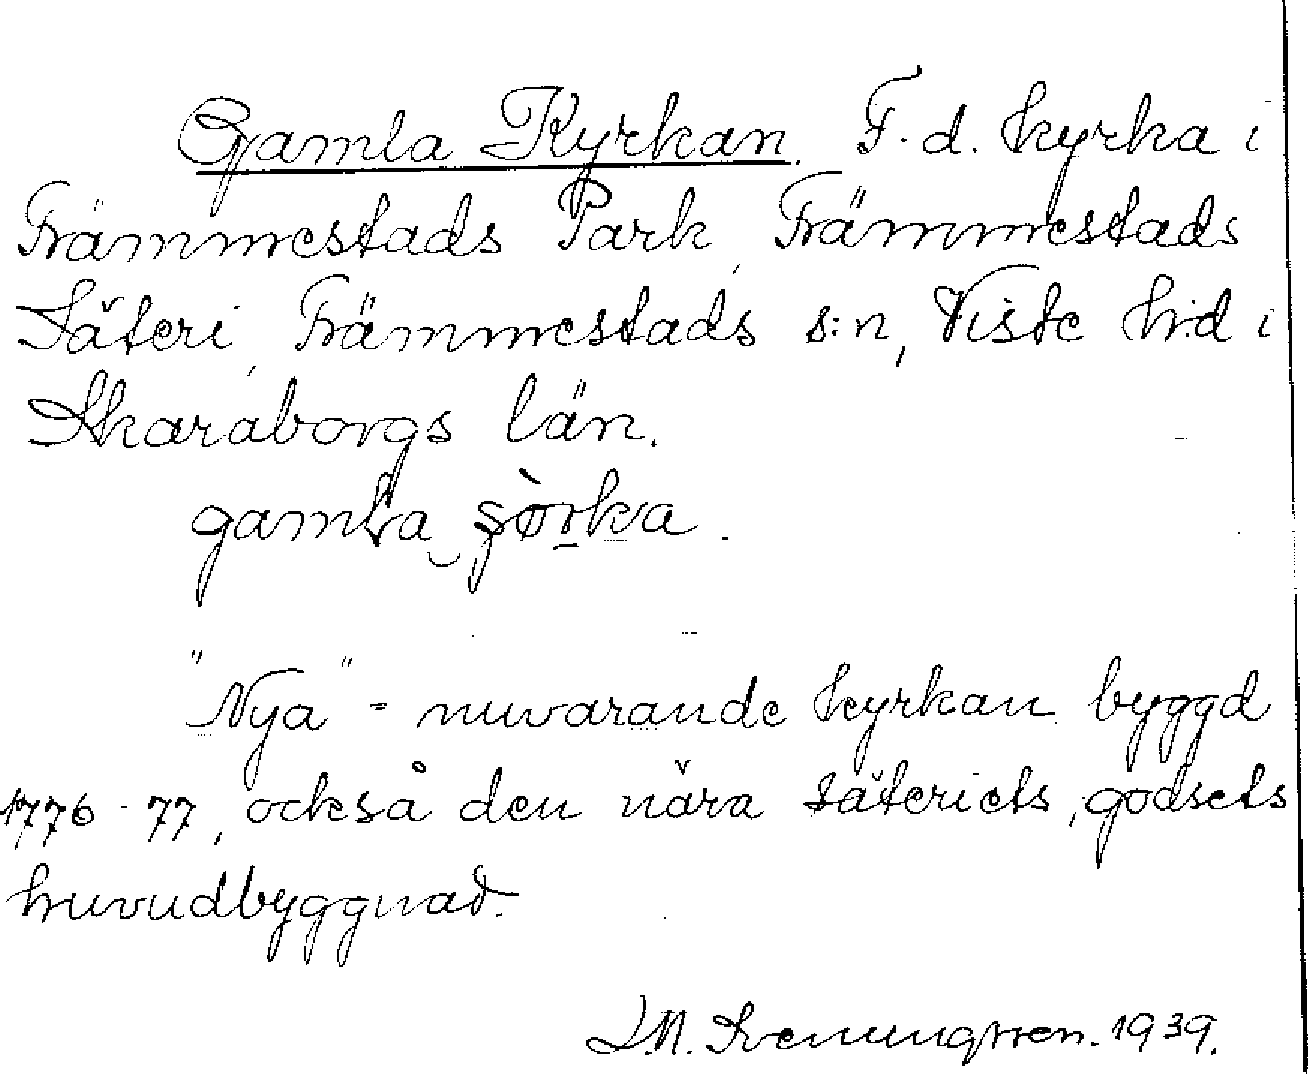 Gamla Kyrkan. F.d. kyrka i
Främmestads Park, Främmestads
Säteri, Främmestads s:n, Viste hd i
Skaraborgs län.
gamla
"Nya" - nuvarande kyrkan byggd
1776-77, också den nära säteriets, godsets
huvudbyggnad.
1939.